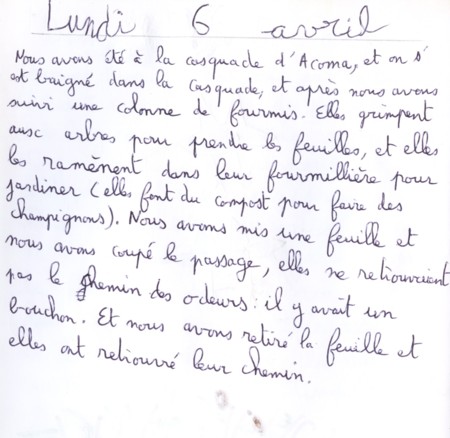 Lundi 6 avril
Nous avons été à la casquade d'Acoma, et on s'
est baigné dans la casquade, et après nous avons
suivi une colonne de fourmis. Elles grimpent
ausc arbres pour prendre les feuilles, et elles
les ramènent dans leur fourmillière pour
jardiner (elles font du compost pour faire des
champignons). Nous avons mis une feuille et
nous avons coupé le passage, elles ne retrouvaient
pas le chemin des odeurs : il y avait un
bouchon. Et nous avons retiré la feuille et
elles ont retrouvré leur chemin.